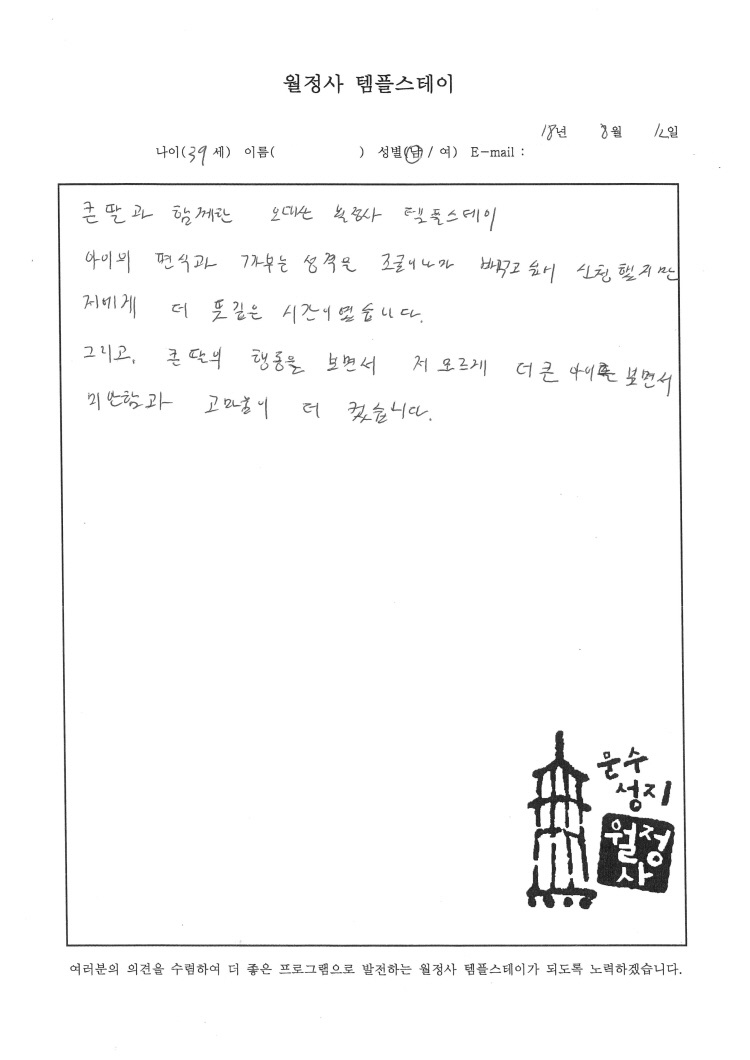 월정사 템플스테이
18년 8월 12일
나이(39세) 이름( ) 성별(남 / 여) E-mail :
큰 딸과 함께한 오대산 월정사 템플스테이
아이의 편식과 까부는 성격을 조금이나마 바꾸고 싶어 신청했지만
저에게 더 뜻깊은 시간이였습니다.
그리고, 큰 딸의 행동을 보면서 저 모르게 더 큰 아이를 보면서
미안함과 고마움이 더 컸습니다.
문수
성지
월정
사
여러분의 의견을 수렴하여 더 좋은 프로그램으로 발전하는 월정사 템플스테이가 되도록 노력하겠습니다.